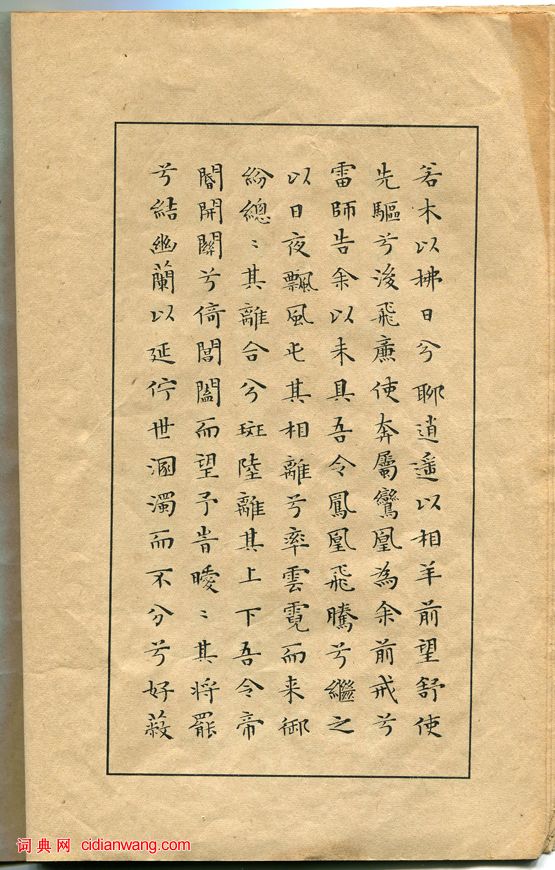 若木以拂日兮聊逍遙以相羊前望舒使
先驅兮後飛廉使奔屬鸞凰為余前戒兮
雷師告余以未具吾令鳳凰飛騰兮繼之
以日夜飄風屯其相離兮率雲霓而来御
紛總〻其離合兮斑陸離其上下吾令帝
閽開關兮倚閶闔而望予旹曖〻其将罷
兮結幽蘭以延佇世溷濁而不分兮好蔽
词典网 cidianwang.com